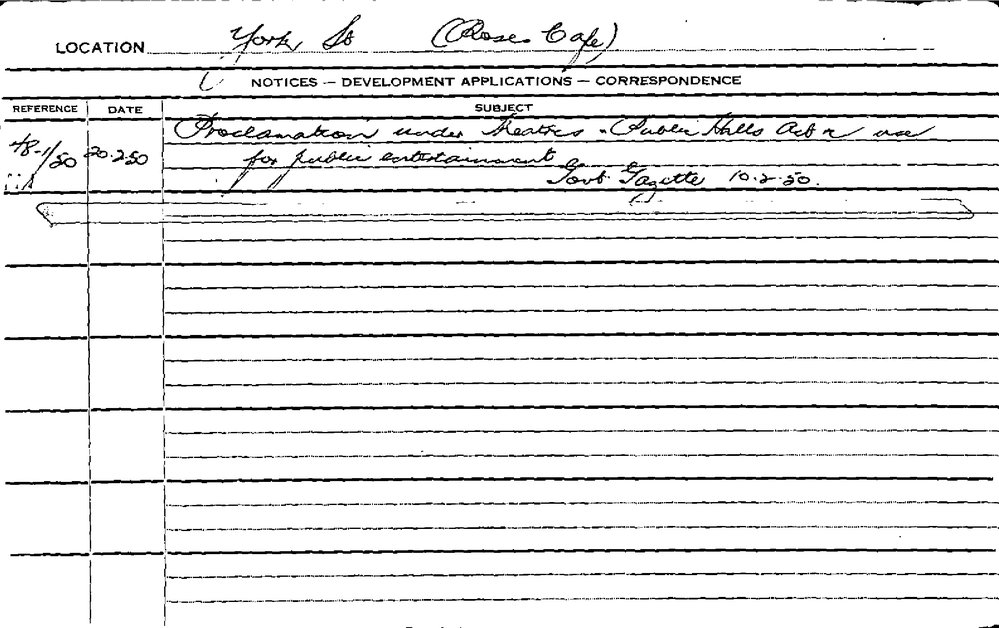 LOCATION York St (Roses Cafe)
NOTICES — DEVELOPMENT APPLICATIONS — CORRESPONDENCE
REFERENCE DATE SUBJECT
48-1/50 20.2.50 Proclamation under Theatres & Public Halls Act re use
for public entertainment
Govt. Gazette 10.2.50.